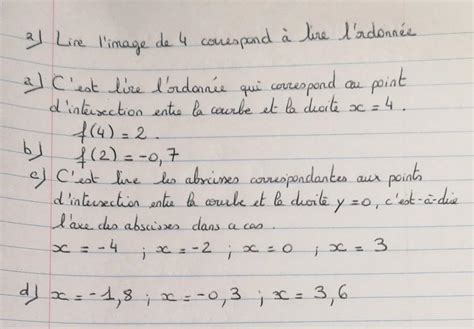 a) Lire l'image de 4 correspond à lire l'ordonnée
a) C'est lire l'ordonnée qui correspond au point
d'intersection entre la courbe et la droite x = 4.
f(4) = 2.
b) f(2) = -0,7
c) C'est lire les abscisses correspondantes aux points
d'intersection entre la courbe et la droite y = 0, c'est-à-dire
l'axe des abscisses dans ce cas.
x = -4 ; x = -2 ; x = 0 ; x = 3
d) x = -1,8 ; x = -0,3 ; x = 3,6